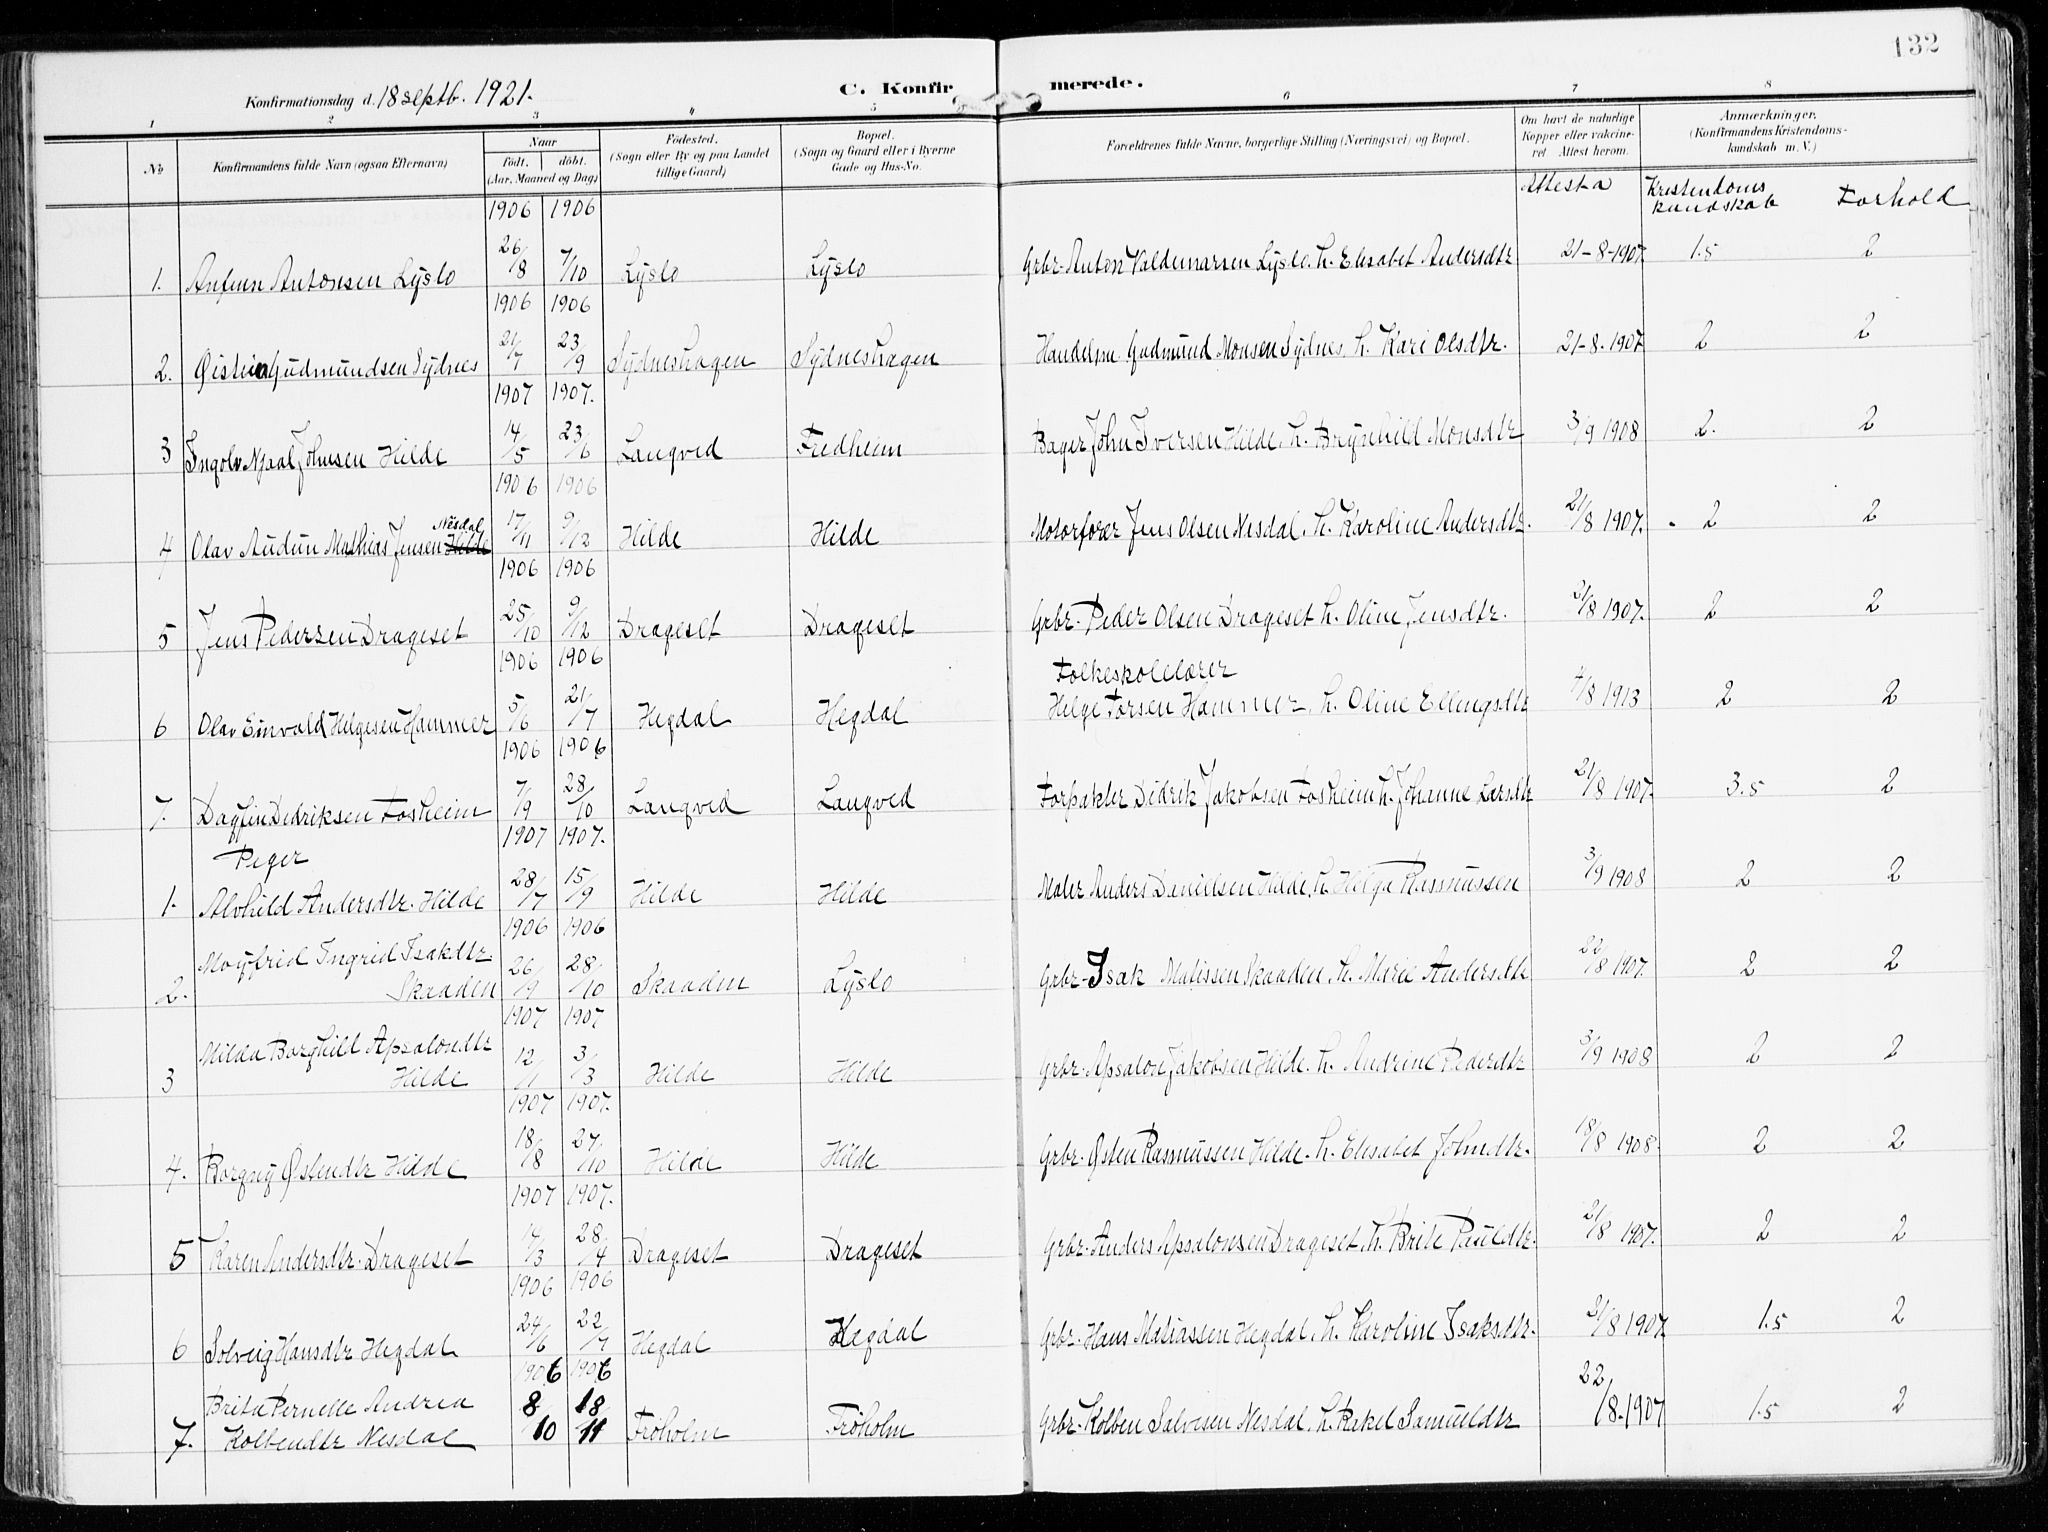 132
Konfirmationsdag d. 18 septb. 1921.
C. Konfirmerede.
1 2 3 4 5 6 7 8
No
Konfirmandens fulde Navn (ogsaa Efternavn)
Naar
født. døbt.
(Aar, Maaned og Dag)
Fødested.
(Sogn eller By og paa Landet
tillige Gaard)
Bopæl.
(Sogn og Gaard eller i Byerne
Gade og Hus-No.
Forældrenes fulde Navne, borgerlige Stilling (Næringsvei) og Bopæl.
Om havt de naturlige
Kopper eller vakcine-
ret Attest herom.
Anmærkninger.
(Konfirmandens Kristendoms-
kundskab m. V.)
Attesta
Kristendoms
kundskab
Forhold
1906 1906
1. Anfinn Antonsen Lyslo 26/8 7/10 Lyslo Lyslo Grbr. Anton Valdemarsen Lyslo. h. Elisabet Andersdtr 21-8-1907. 1.5 2
1906 1906
2. Øistein Gudmundsen Sydnes 21/7 23/9 Sydneshagen Sydneshagen Handelsm. Gudmund Monsen Sydnes h. Kari Olsdtr. 21-8-1907 2 2
1907 1907.
3 Ingolv Njaal Johnsen Hilde 14/5 23/6 Langved Fredheim Bager John Iversen Hilde, h. Brynhild Monsdtr 3/9 1908 2. 2
1906 1906
Nesdal
4 Olav Audun Mathias Jensen Hilde 17/11 9/12 Hilde Hilde Motorfører Jens Olsen Nesdal, h. Karoline Andersdtr. 21/8 1907. 2 2
1906 1906
5 Jens Pedersen Drageset 25/10 9/12 Drageset Drageset Grbr. Peder Olsen Drageset h. Oline Jensdtr. 21/8 1907. 2 2
1906 1906
Folkeskolelærer
6 Olav Einvald Helgesen Hammer 5/6 21/7 Hegdal Hegdal Helge Torsen Hammer, h. Oline Ellingsdtr 4/8 1913 2 2
1906 1906
7. Dagfin Didriksen Fosheim 7/9 28/10 Langved Langved Forpakter Didrik Jakobsen Fosheim h. Johanne Larsdtr 21/8 1907. 3.5 2
1907 1907.
Piger
1. Alvhild Andersdtr. Hilde 28/7 15/9 Hilde Hilde Maler Anders Danielsen Hilde, h. Helga Rasmussen 3/9 1908 2 2
1906 1906
Moyfrid Ingrid Isakdtr
2. Skaaden 26/9 28/10 Skaaden Lyslo Grbr. Isak Matissen Skaaden, h. Marie Andersdtr 22/8 1907. 2 2
1907 1907
Milda Borghild Apsalondtr
3 Hilde 12/1 3/3 Hilde Hilde Grbr. Apsalon Jakobsen Hilde. h. Andrine Pedersdtr 3/9 1908 2 2
1907 1907.
4. Borgny Østendtr Hilde 18/8 27/10 Hilde Hilde Grbr. Østen Rasmussen Hilde. h. Elisabet Johndtr. 18/8 1908. 2 2
1907 1907.
5 Karen Andersdtr. Drageset 14/3 28/4 Drageset Drageset Grbr. Anders Apsalonsen Drageset, h. Brite Pauldtr. 21/8 1907. 2 2
1906 1906
6 Solveig Hansdtr Hegdal 24/6 22/7 Hegdal Hegdal Grbr. Hans Matiassen Hegdal, h. Karoline Isaksdtr. 21/8 1907. 1.5 2
1906 1906
Brita Pernelle Andrea
7. Kolbendtr Nesdal 8/10 18/11 Frøholm Frøholm Grbr. Kolben Salvesen Nesdal, h. Rakel Samueldtr 22/8-1907 1.5 2